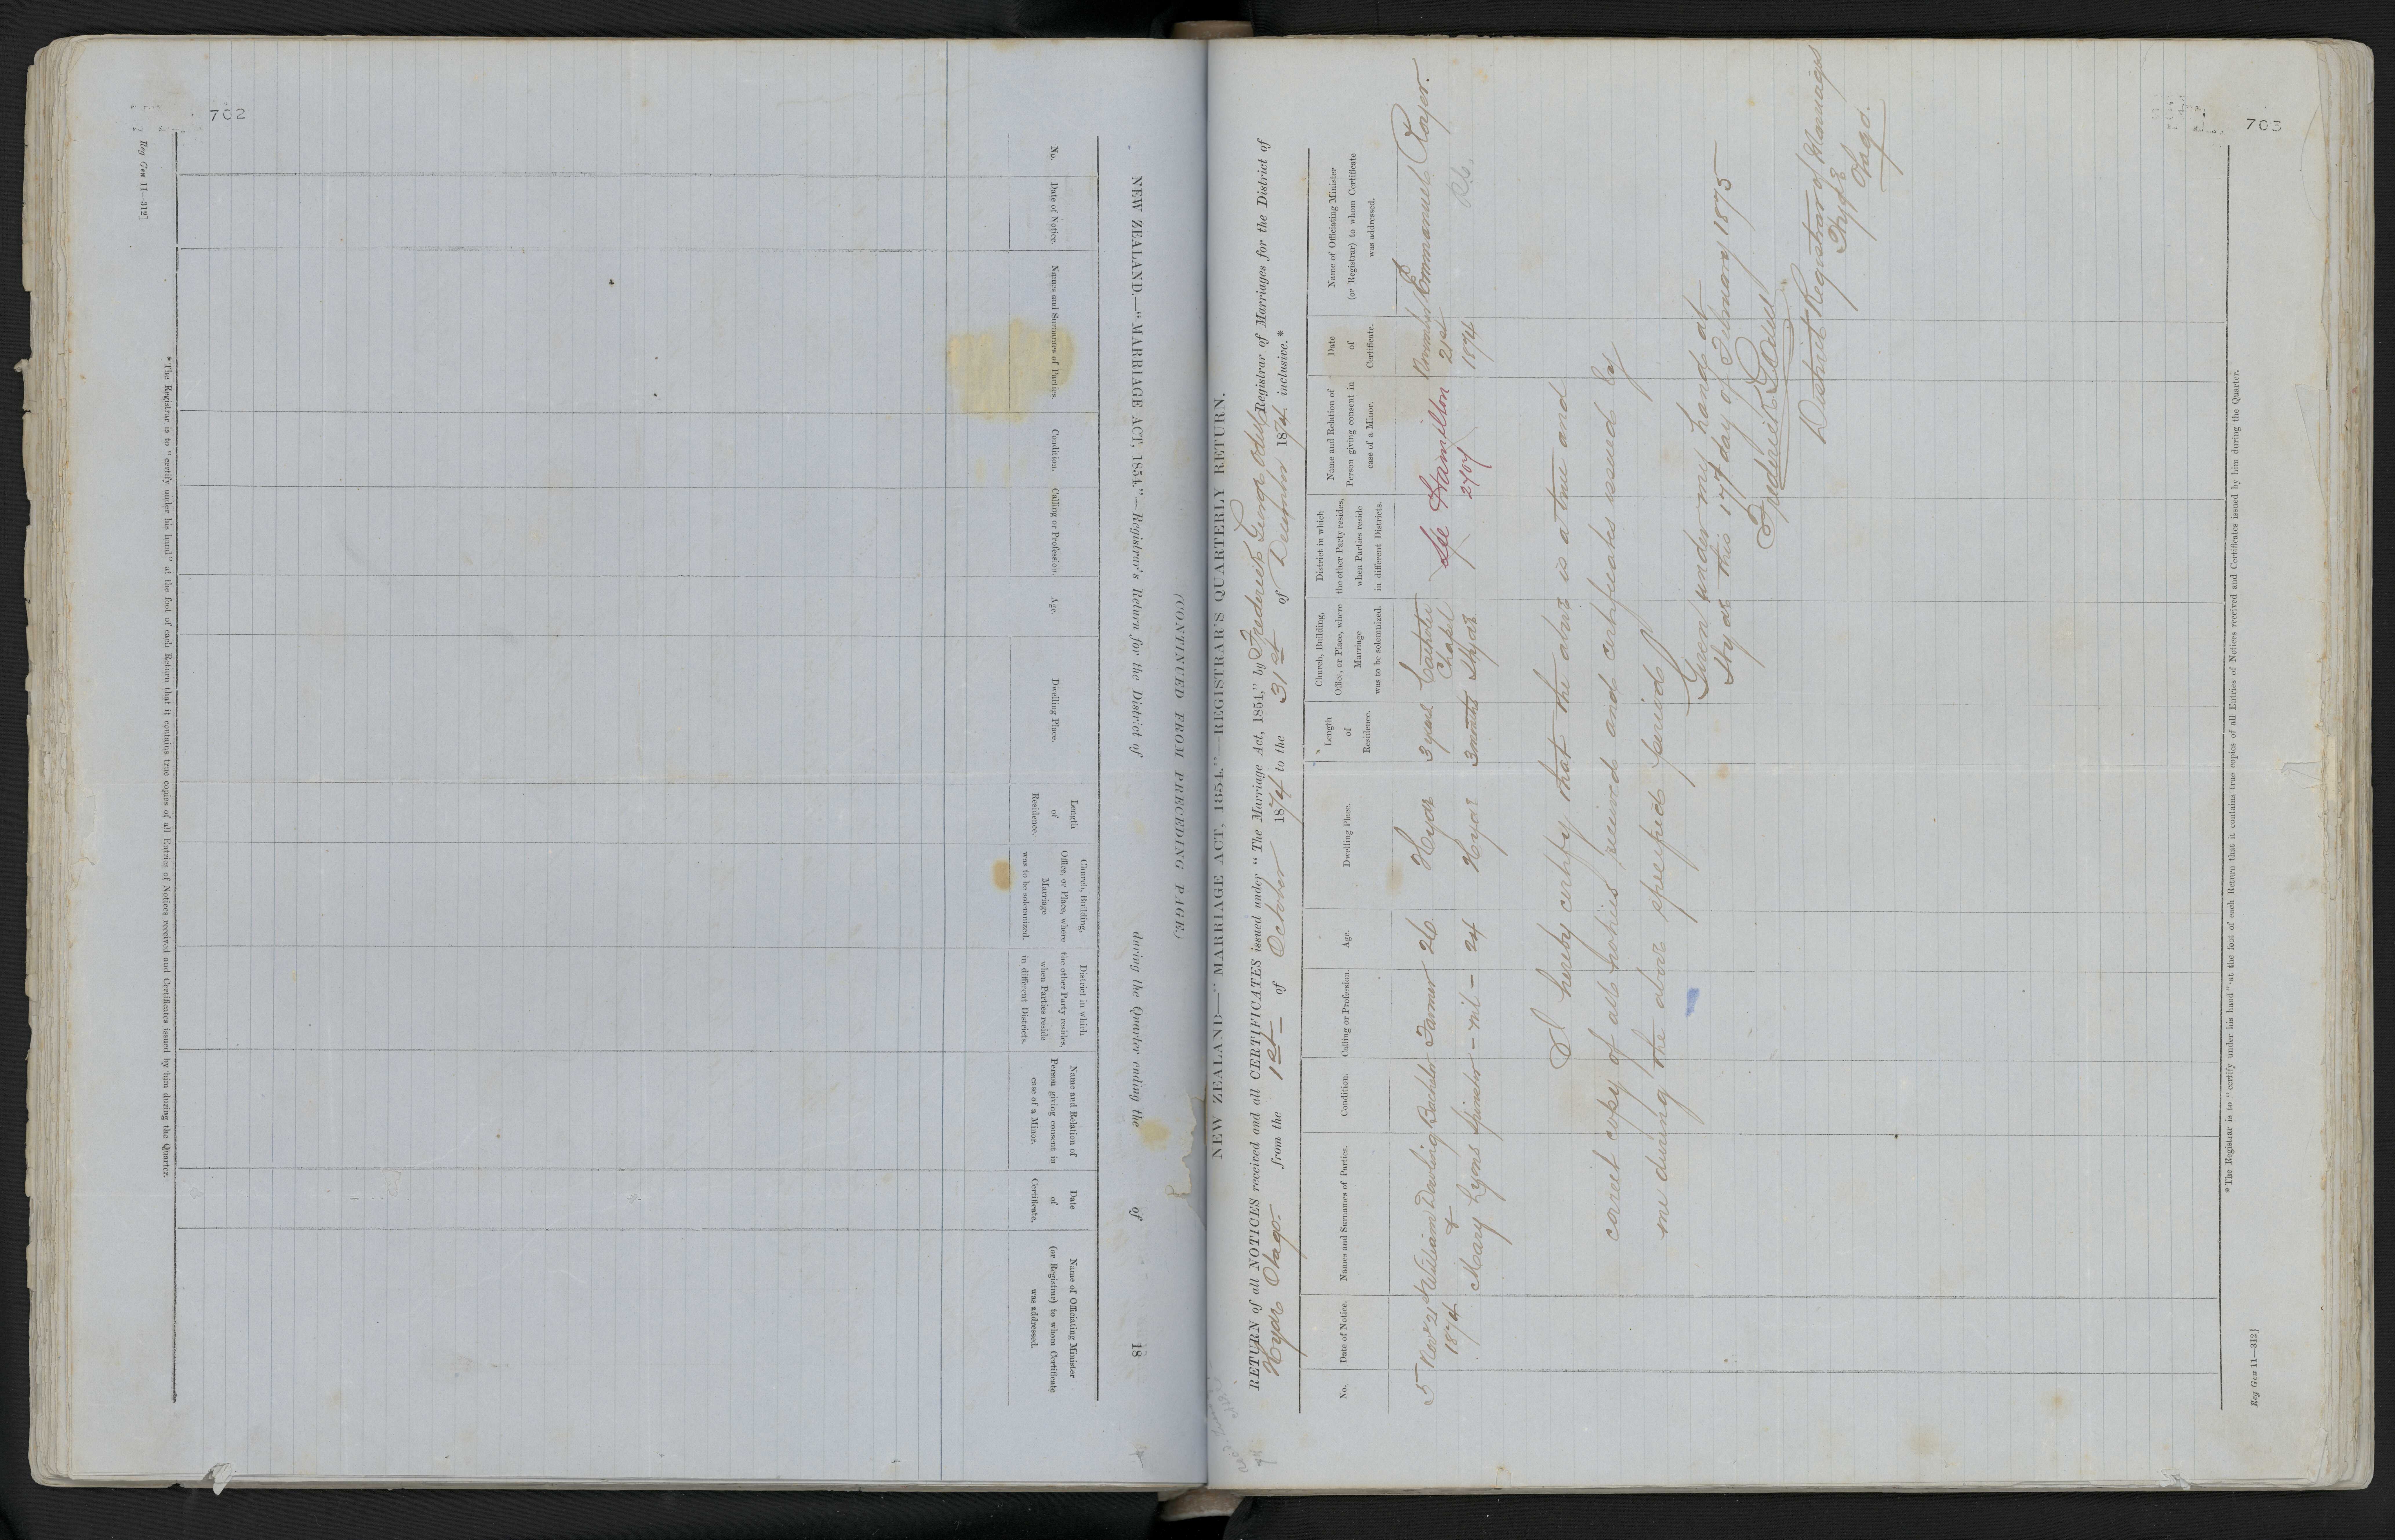 702
Reg Gen 11—312]
NEW ZEALAND.—"MARRIAGE ACT, 1854."—Registrar's Return for the District of during the Quarter ending the of 18
(CONTINUED FROM PRECEDING PAGE.)
No.
Date of Notice.
Names and Surnames of Parties.
Condition.
Calling or Profession.
Age.
Dwelling Place.
Length
of
Residence.
Church, Building,
Office, or Place, where
Marriage
was to be solemnized.
District in which
the other Party resides,
when Parties reside
in different Districts.
Name and Relation of
Person giving consent in
case of a Minor.
Date
of
Certificate.
Name of Officiating Minister
(or Registrar) to whom Certificate
was addressed.
*The Registrar is to "certify under his hand" at the foot of each Return that it contains true copies of all Entries of Notices received and Certificates issued by him during the Quarter.
703
NEW ZEALAND—"MARRIAGE ACT, 1854."—REGISTRAR'S QUARTERLY RETURN.
RETURN of all NOTICES received and all CERTIFICATES issued under "The Marriage Act, 1854," by Frederick George Odell Registrar of Marriages for the District of
Hyde Otago from the 1st of October 1874 to the 31st of December 1874 inclusive.*
No.
Date of Notice.
Names and Surnames of Parties.
Condition.
Calling or Profession.
Age.
Dwelling Place.
Length
of
Residence.
Church, Building,
Office, or Place, where
Marriage
was to be solemnized.
District in which
the other Party resides,
when Parties reside
in different Districts.
Name and Relation of
Person giving consent in
case of a Minor.
Date
of
Certificate.
Name of Officiating Minister
(or Registrar) to whom Certificate
was addressed.
5 Nov 21st William Dowling Bachelor Farmer 26 Hyde 3 years Catholic See Hamilton November Emmanuel Royer.
1874 & Chapel 2707 21st
Mary Lyons Spinster - nil - 24 Hyde 3 months Hyde 1874
I hereby certify that the above is a true and
correct copy of all notices received and certificates issued by
me during the above specified period
Given under my hand at
Hyde this 17th day of February 1875
Frederick G Odell
District Registrar of Marriages
Hyde
Otago.
*The Registrar is to "certify under his hand" at the foot of each Return that it contains true copies of all Entries of Notices received and Certificates issued by him during the Quarter.
Reg Gen 11—312]